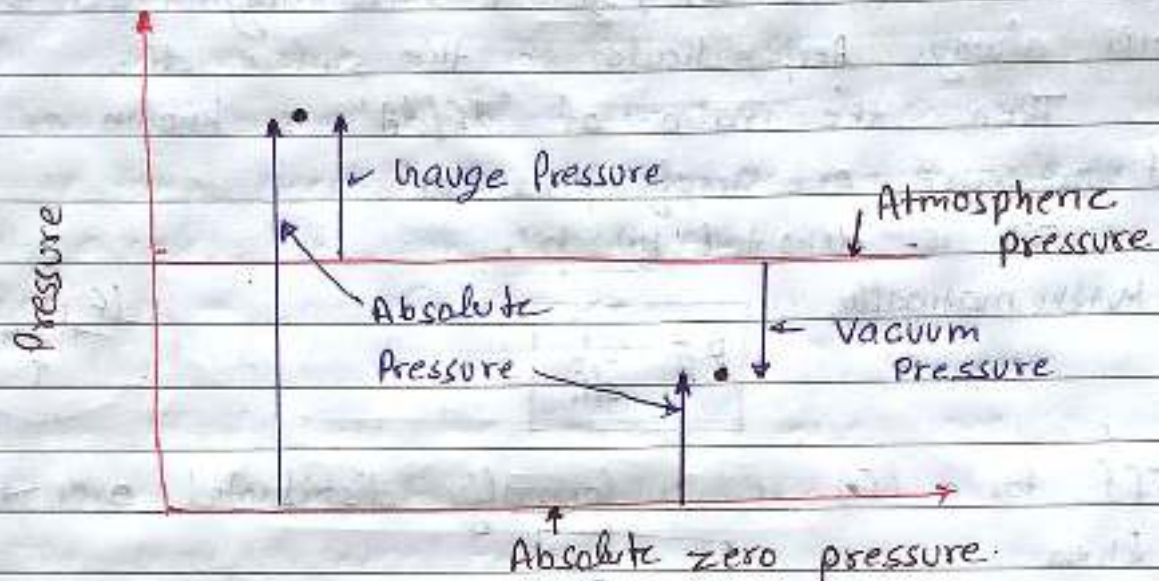 Gauge Pressure
Atmospheric
pressure
Pressure
Absolute
Pressure
Vacuum
Pressure
Absolute zero pressure.